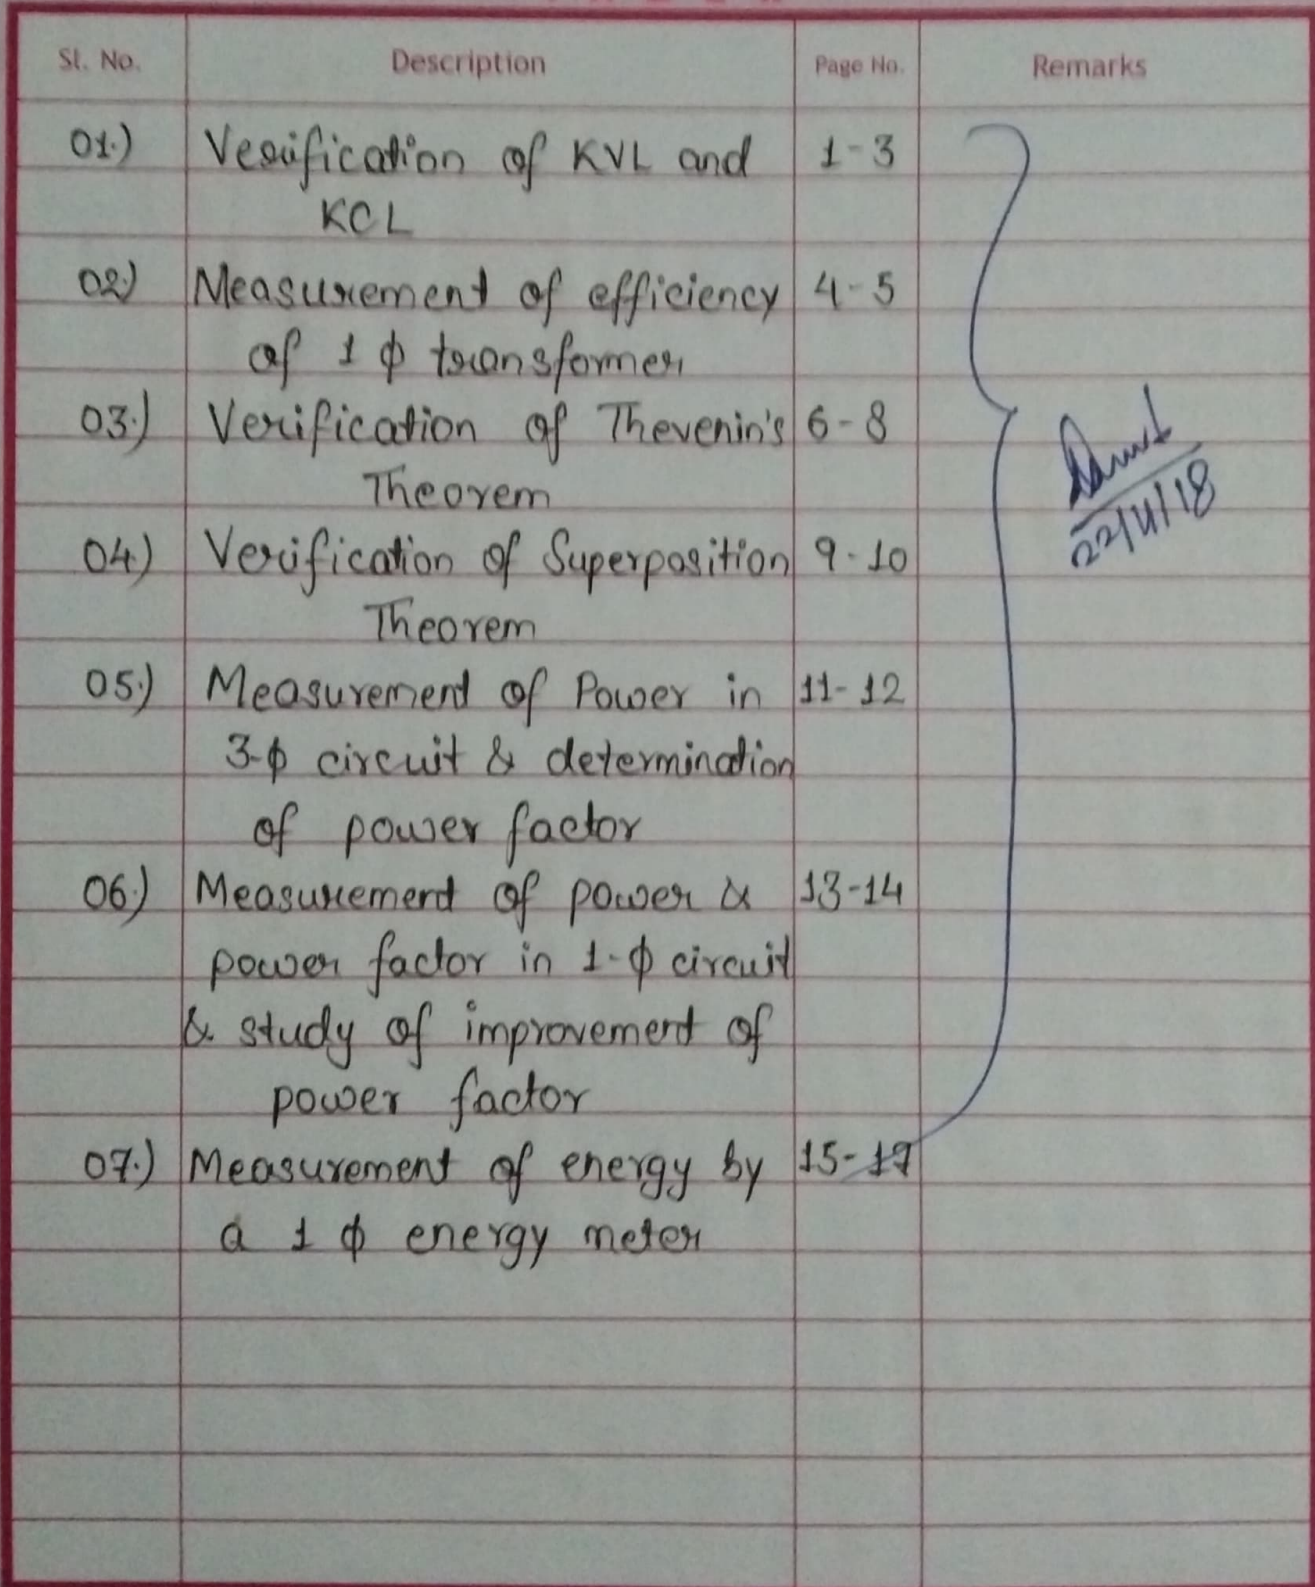 Sl. No. Description Page No. Remarks
01.) Verification of KVL and 1-3
KCL
02.) Measurement of efficiency 4-5
of 1 ϕ transformer
03.) Verification of Thevenin's 6-8
Theorem
04.) Verification of Superposition 9-10
Theorem
05.) Measurement of Power in 11-12
3-ϕ circuit & determination
of power factor
06.) Measurement of power & 13-14
power factor in 1-ϕ circuit
& study of improvement of
power factor
07.) Measurement of energy by 15-17
a 1 ϕ energy meter
22/11/18